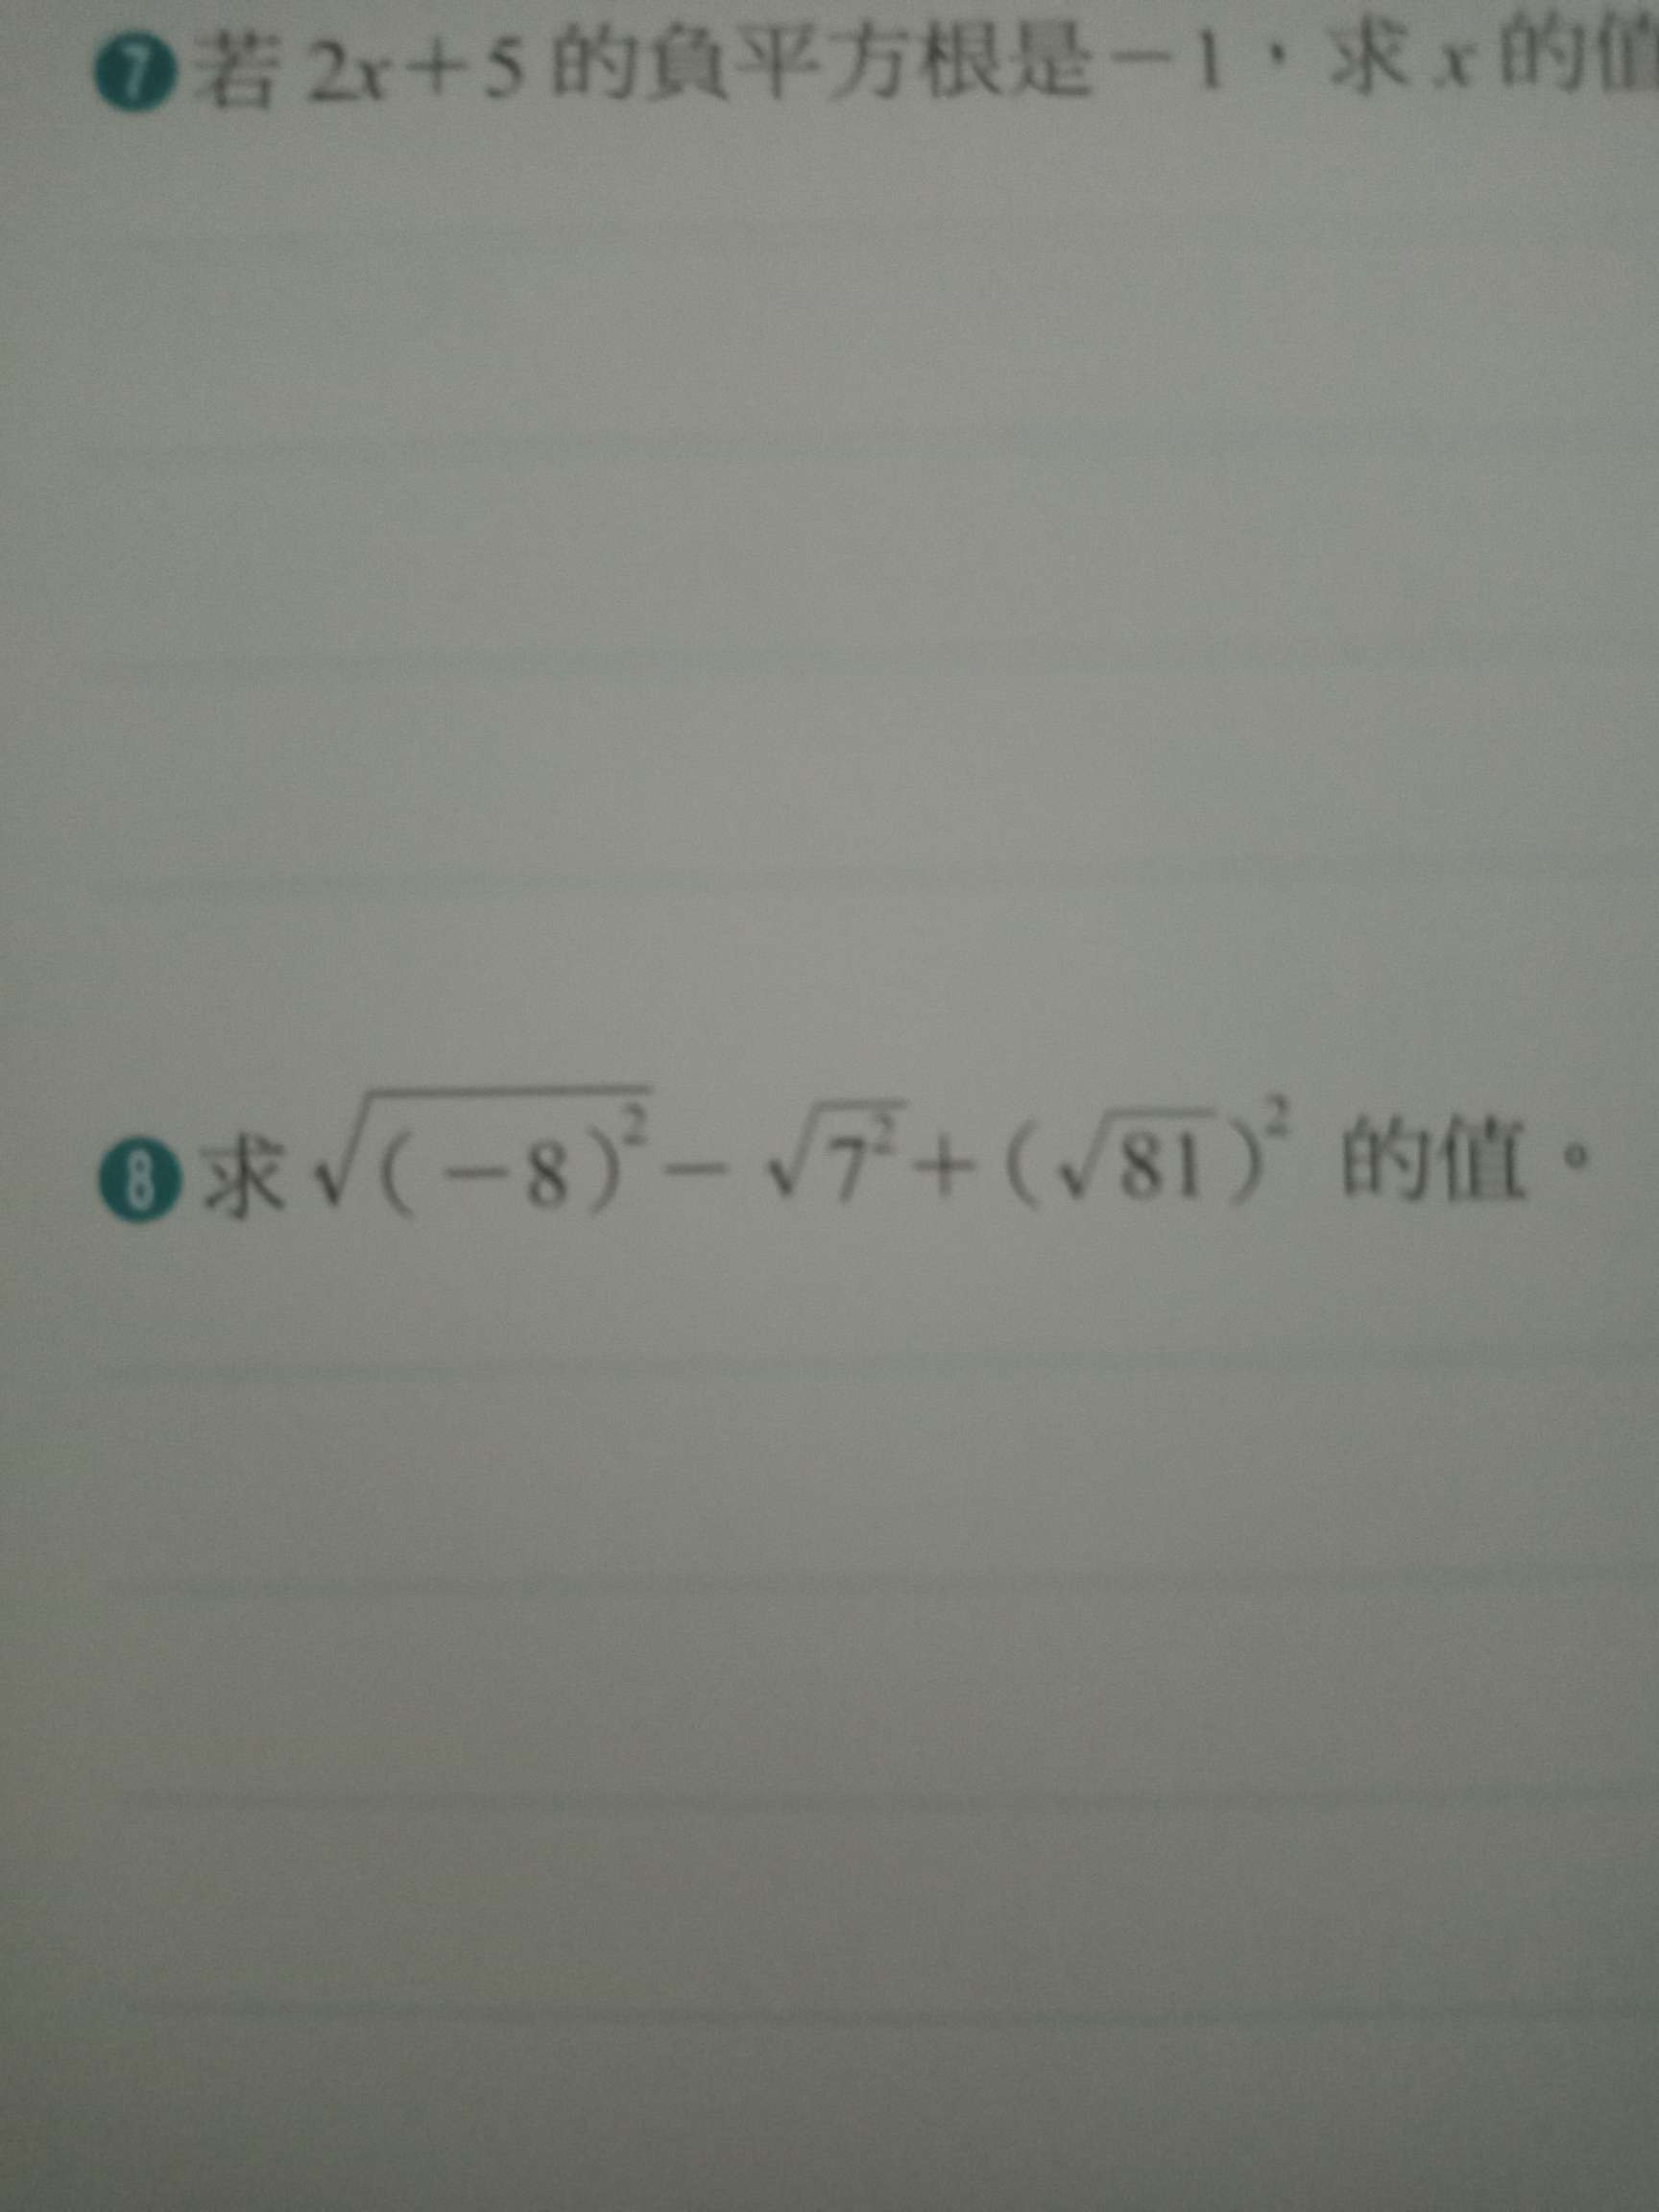 7 若 2x+5 的負平方根是-1，求 x 的值
8 求 √(-8)² - √7² + (√81)² 的值。